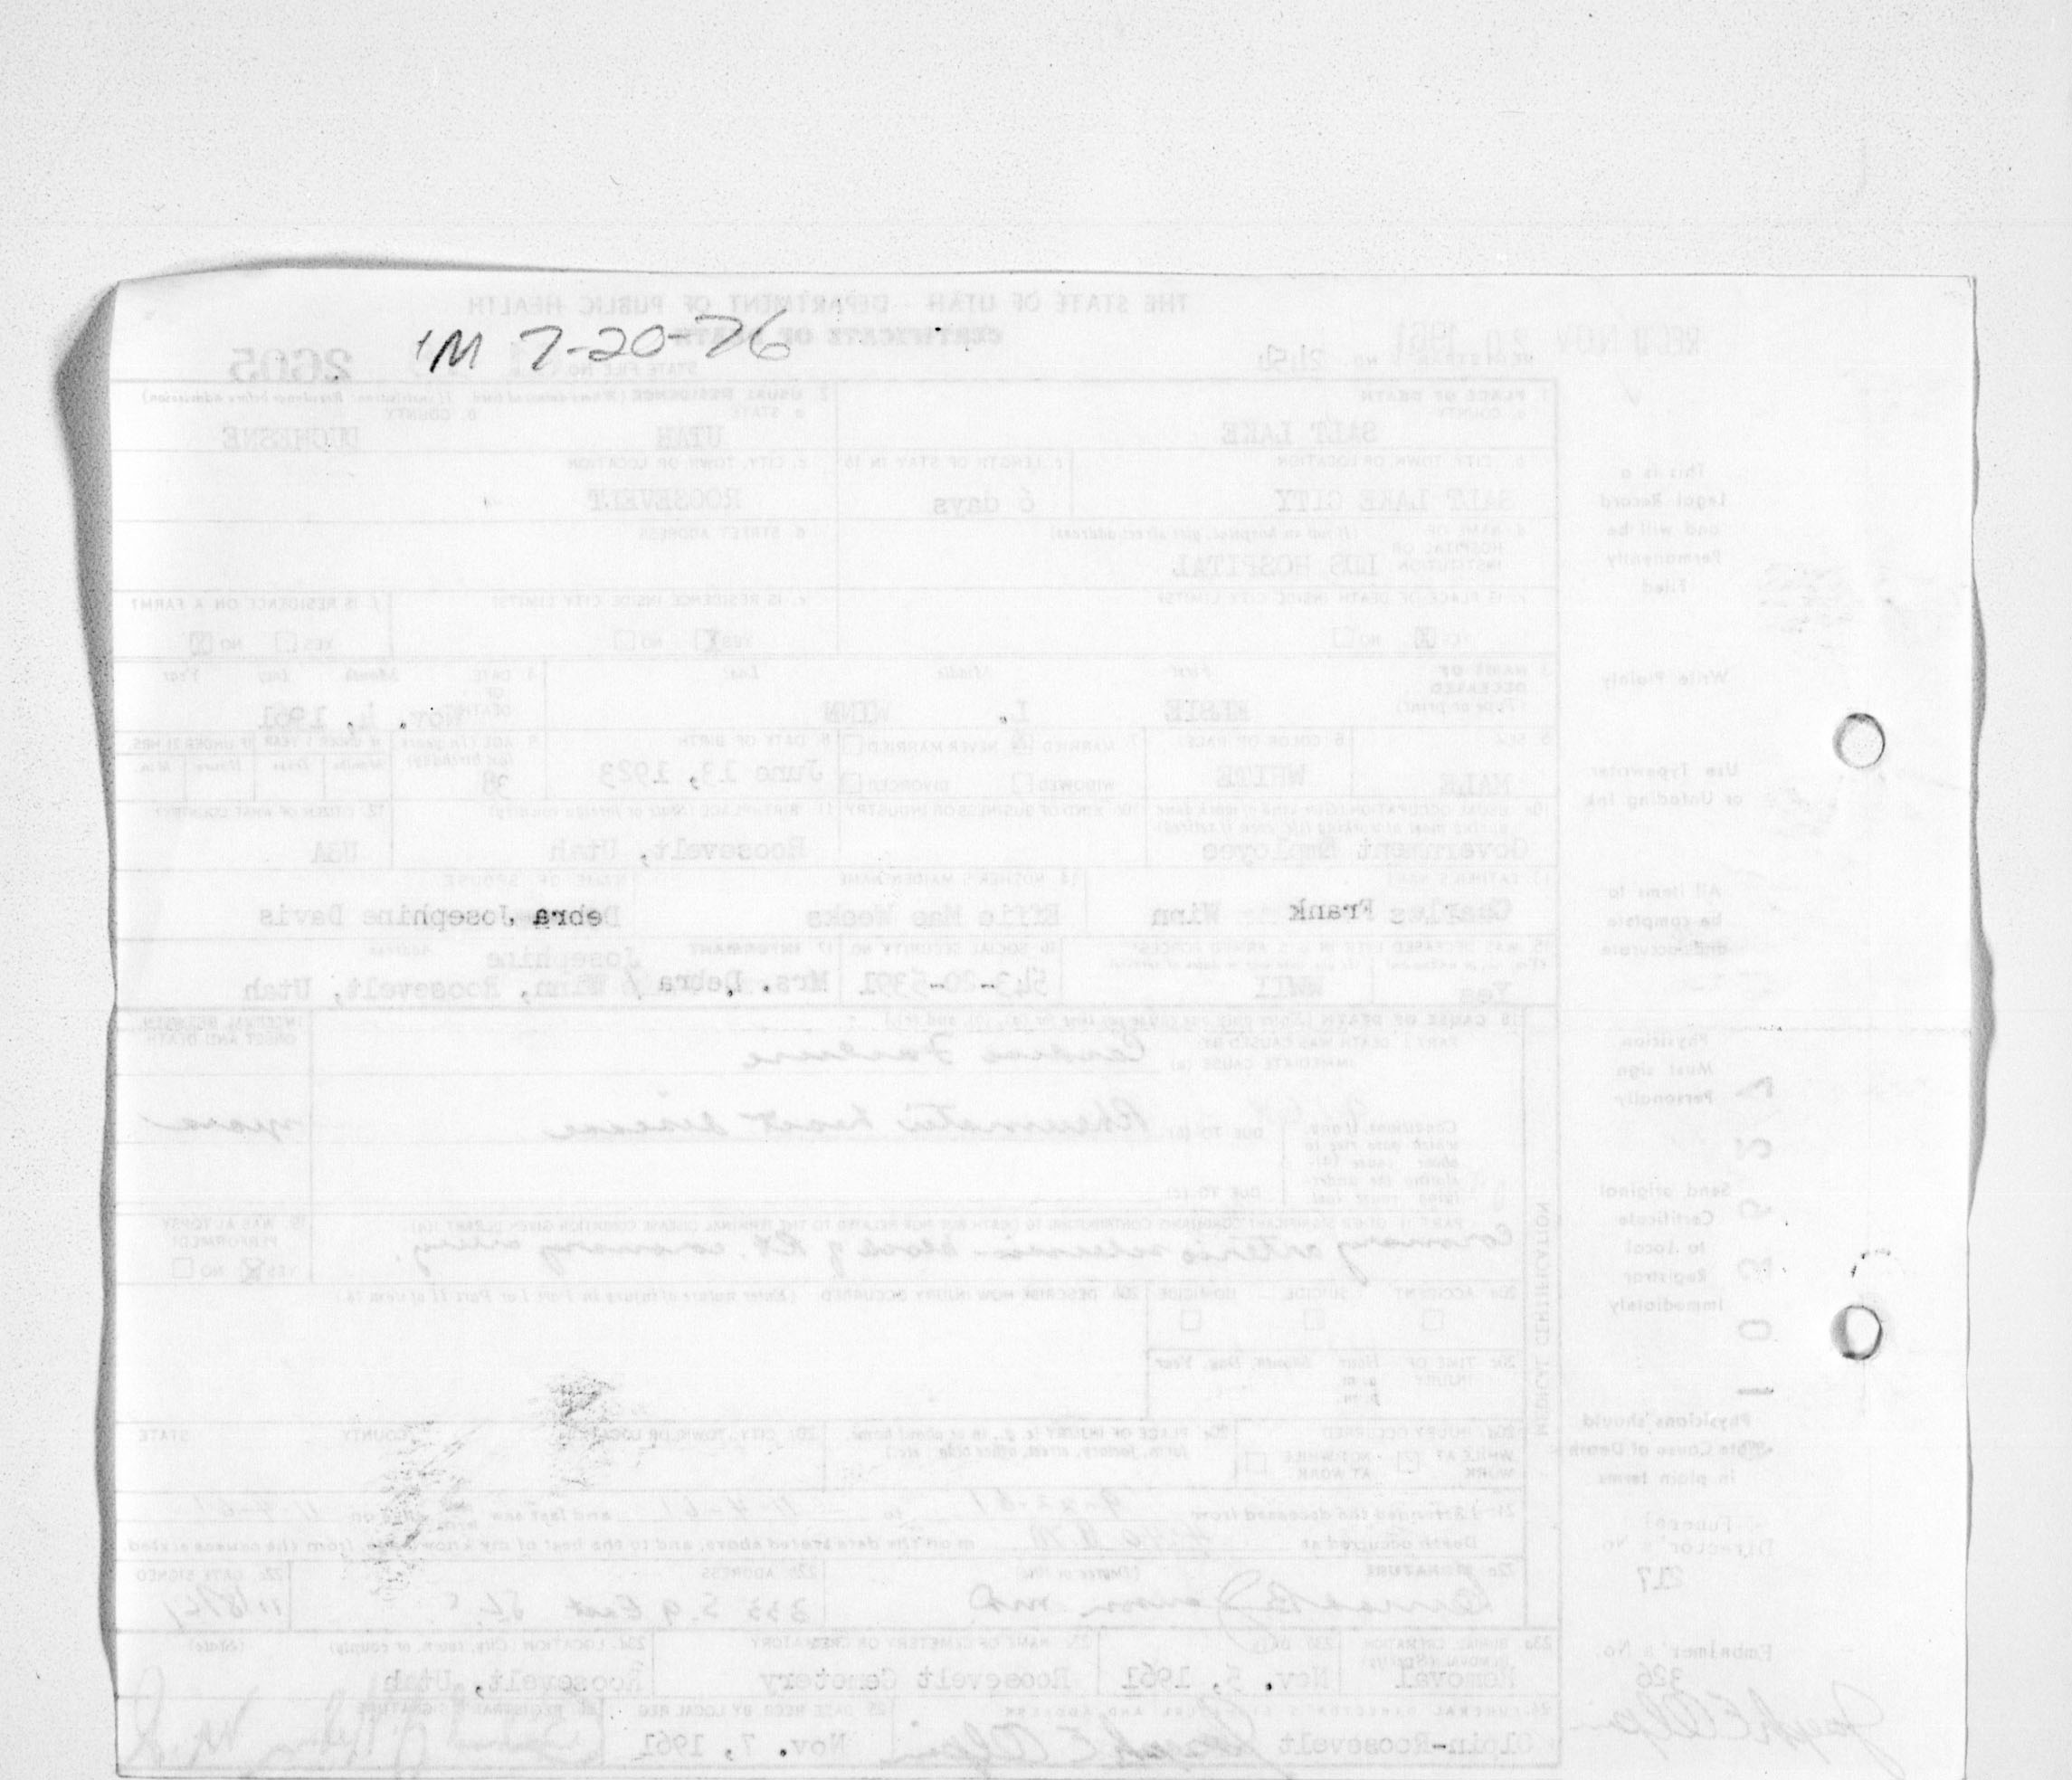 1M 7-20-76
THE STATE OF UTAH - DEPARTMENT OF PUBLIC HEALTH
CERTIFICATE OF DEATH
REC'D NOV 20 1961
STATE FILE NO.
2605
1. PLACE OF DEATH
a. COUNTY
SALT LAKE
2. USUAL RESIDENCE (Where deceased lived. If institution: Residence before admission)
a. STATE
UTAH
b. COUNTY
DUCHESNE
b. CITY, TOWN OR LOCATION
SALT LAKE CITY
c. LENGTH OF STAY IN 1b
6 days
c. CITY, TOWN OR LOCATION
ROOSEVELT
d. NAME OF HOSPITAL OR INSTITUTION (If not in hospital, give street address)
LDS HOSPITAL
d. STREET ADDRESS
e. IS PLACE OF DEATH INSIDE CITY LIMITS?
YES NO
e. IS RESIDENCE INSIDE CITY LIMITS?
YES NO
f. IS RESIDENCE ON A FARM?
YES NO
3. NAME OF DECEASED (Type or print)
First Middle Last
L. WINN
4. DATE OF DEATH
Month Day Year
Nov. 4, 1961
5. SEX
MALE
6. COLOR OR RACE
WHITE
7. MARRIED NEVER MARRIED
WIDOWED DIVORCED
8. DATE OF BIRTH
June 13, 1923
9. AGE (In years last birthday)
38
IF UNDER 1 YEAR IF UNDER 24 HRS.
Months Days Hours Min.
10a. USUAL OCCUPATION (Give kind of work done during most of working life, even if retired)
Government Employee
10b. KIND OF BUSINESS OR INDUSTRY
11. BIRTHPLACE (State or foreign country)
Roosevelt, Utah
12. CITIZEN OF WHAT COUNTRY?
USA
13. FATHER'S NAME
Charles Frank Winn
14. MOTHER'S MAIDEN NAME
Effie Mae Weeks
NAME OF SPOUSE
Debra Josephine Davis
15. WAS DECEASED EVER IN U.S. ARMED FORCES?
Yes WWII
16. SOCIAL SECURITY NO.
543-20-5391
17. INFORMANT Address
Josephine
Mrs. Debra / Winn, Roosevelt, Utah
18. CAUSE OF DEATH (Enter only one cause per line for (a), (b), and (c).)
PART I. DEATH WAS CAUSED BY:
IMMEDIATE CAUSE (a)
Cardiac Failure
INTERVAL BETWEEN ONSET AND DEATH
Conditions, if any, which gave rise to above cause (a), stating the underlying cause last.
DUE TO (b)
Rheumatic heart disease
years
DUE TO (c)
PART II. OTHER SIGNIFICANT CONDITIONS CONTRIBUTING TO DEATH BUT NOT RELATED TO THE TERMINAL DISEASE CONDITION GIVEN IN PART I(a)
Coronary arterio sclerosis - block of Rt. coronary artery.
19. WAS AUTOPSY PERFORMED?
YES NO
20a. ACCIDENT SUICIDE HOMICIDE
20b. DESCRIBE HOW INJURY OCCURRED. (Enter nature of injury in Part I or Part II of item 18.)
20c. TIME OF INJURY Hour Month, Day, Year
a. m.
p. m.
20d. INJURY OCCURRED
WHILE AT WORK NOT WHILE AT WORK
20e. PLACE OF INJURY (e. g., in or about home, farm, factory, street, office bldg., etc.)
20f. CITY, TOWN, OR LOCATION COUNTY STATE
MEDICAL CERTIFICATION
21. I attended the deceased from to 11-4-61 and last saw alive on 11-4-61
Death occurred at m on the date stated above, and to the best of my knowledge, from the causes stated.
22a. SIGNATURE (Degree or title)
MD
22b. ADDRESS
333 S. 9 East
22c. DATE SIGNED
23a. BURIAL, CREMATION, REMOVAL (Specify)
Removal
23b. DATE
Nov. 5, 1961
23c. NAME OF CEMETERY OR CREMATORY
Roosevelt Cemetery
23d. LOCATION (City, town, or county) (State)
Roosevelt, Utah
24. FUNERAL DIRECTOR'S SIGNATURE AND ADDRESS
Olpin-Roosevelt Joseph E Olpin
25. DATE RECD. BY LOCAL REG.
Nov. 7, 1961
26. REGISTRAR'S SIGNATURE
This is a Legal Record and will be Permanently Filed
Write Plainly
Use Typewriter or Unfading Ink
All items to be complete and accurate
Physician Must sign Personally
Send original Certificate to Local Registrar Immediately
Physicians should state Cause of Death in plain terms
Funeral Director's No.
217
Embalmer's No.
326
Joseph E Olpin